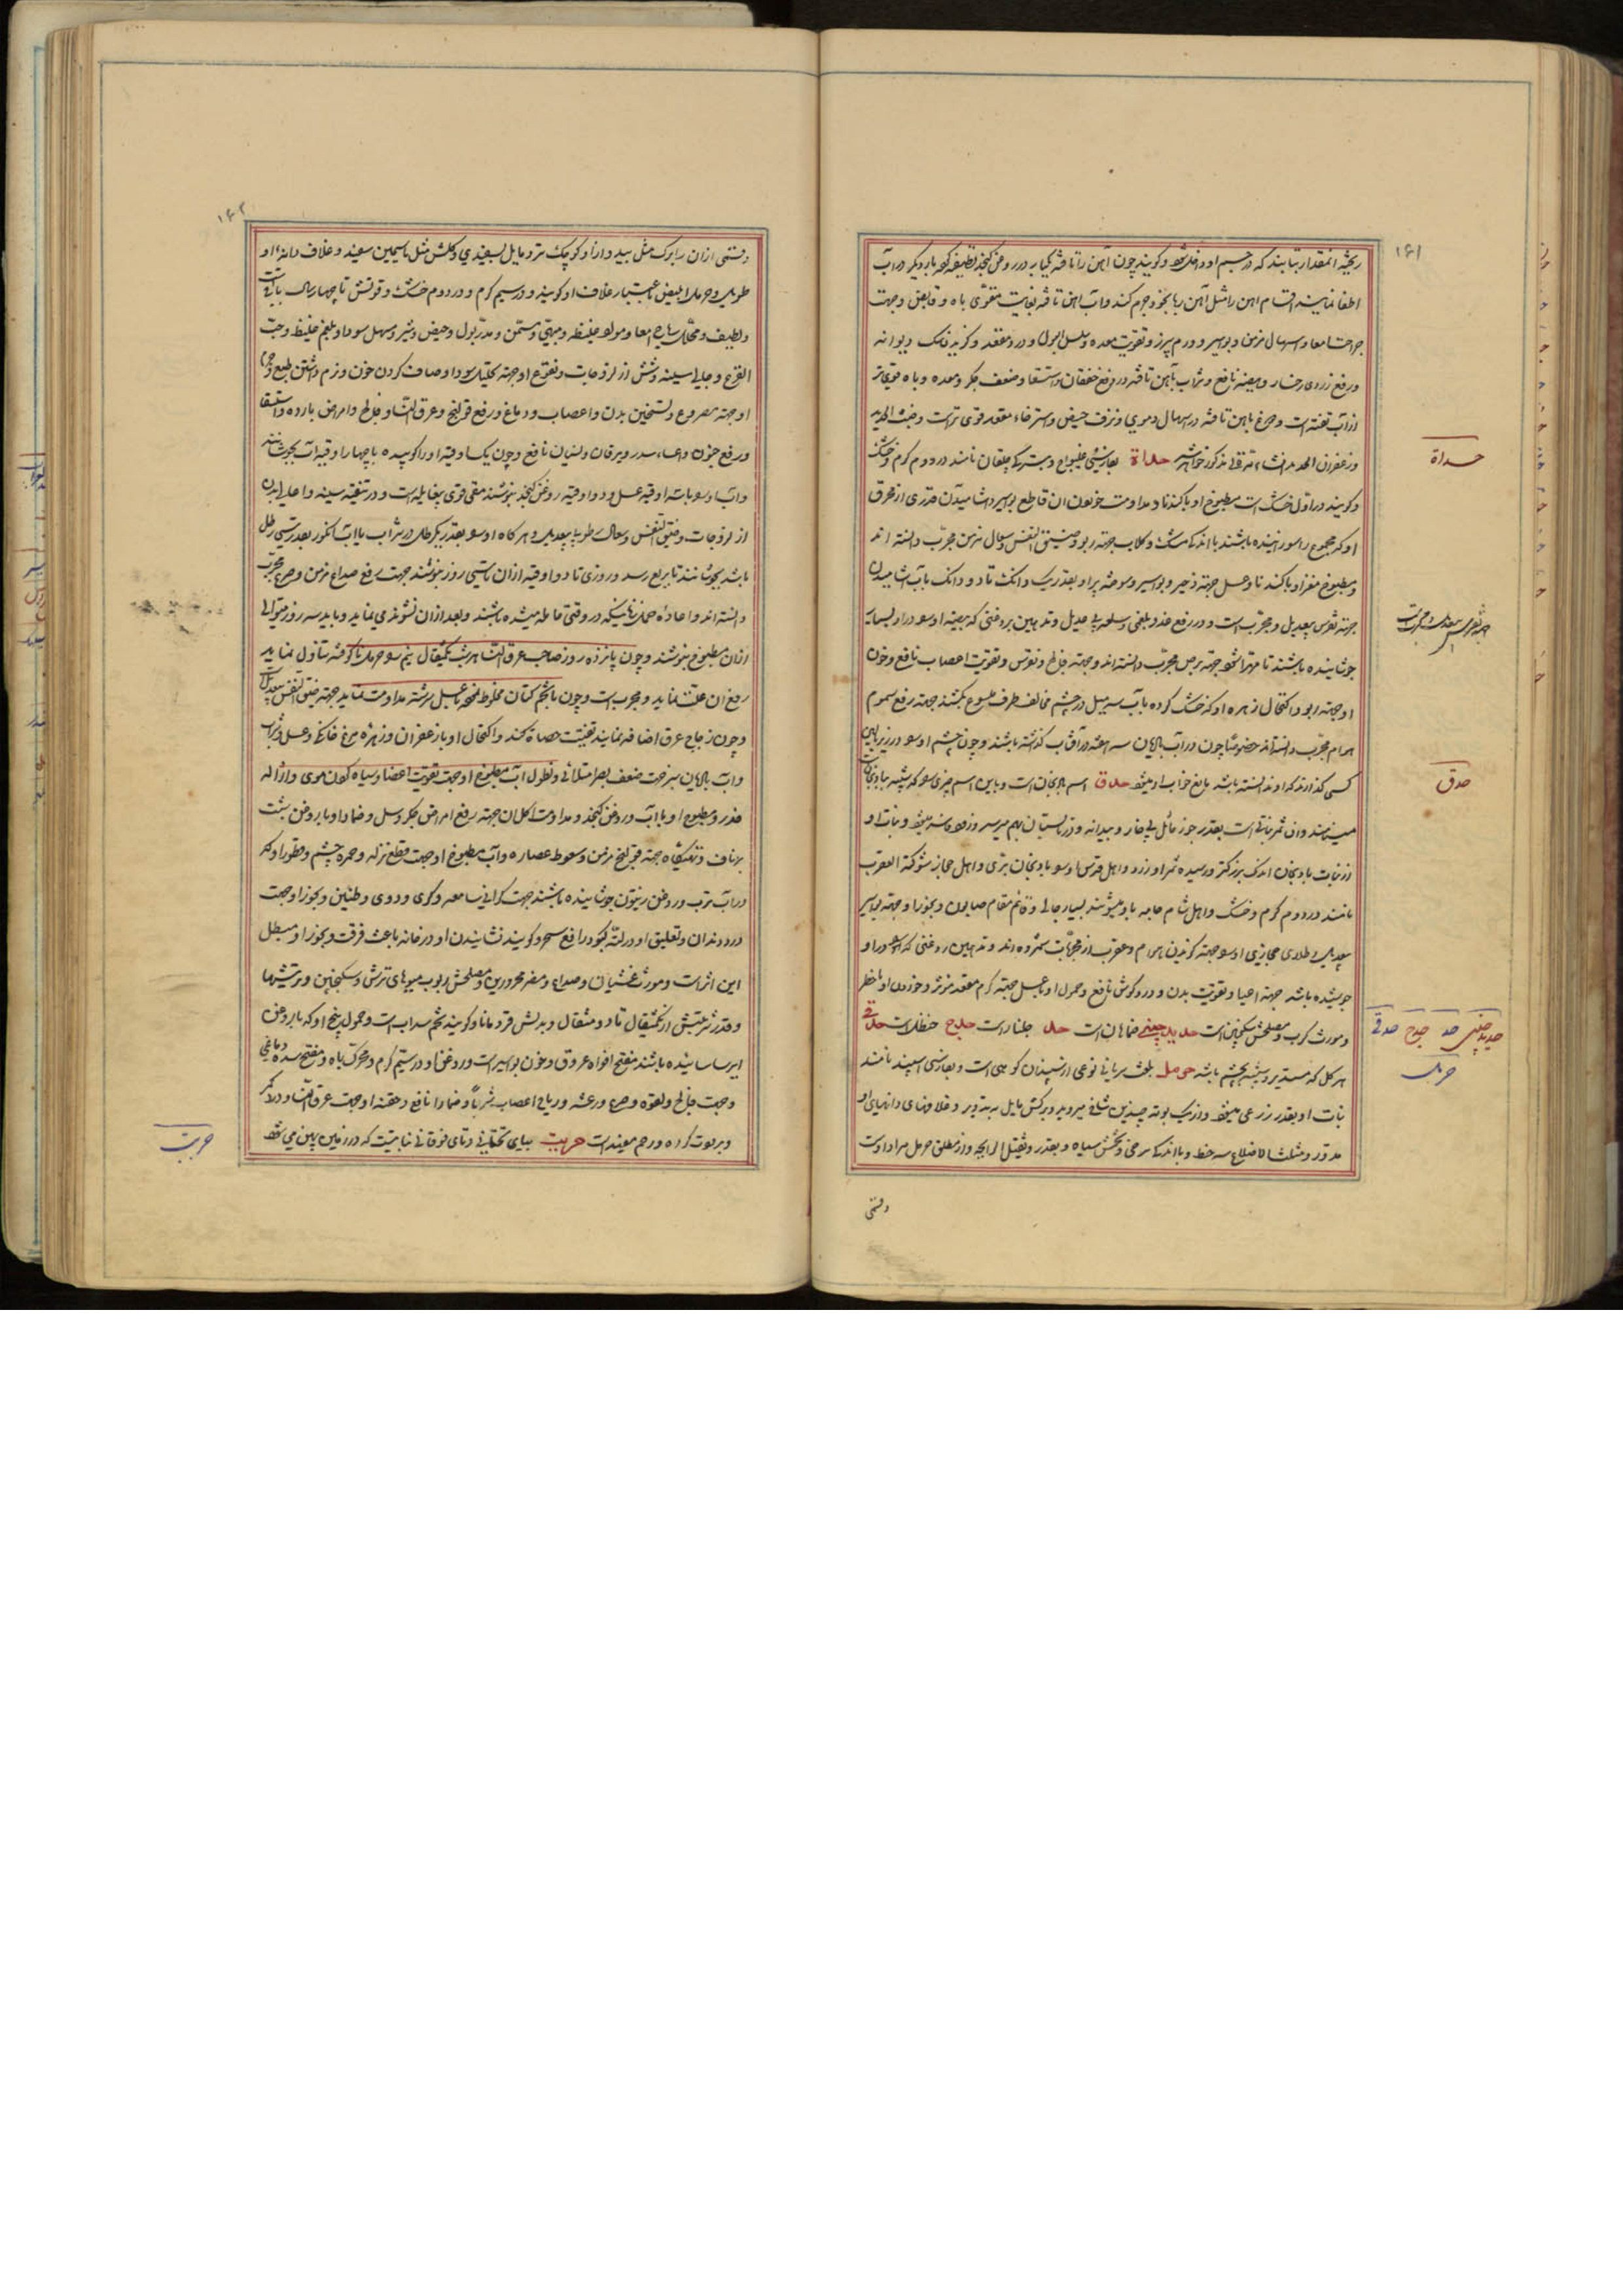 ۱۶۱
ریخته انمقدار بتابند که در جسم او در فلک شود و کویند چون آهن را تافته یکبار در روغن کنجد تطفیه کنند بار دیگر در آب
اطفا نمایند اقسام آهن را مثل آهن ربا بخود جرم کند و آب آهن تافته بغایت مقوی باه و قابض و جهت
جراحت امعا و اسهال مزمن و بواسیر و ورم سپرز و تقویت معده و سلس البول و درد مقعد و کزیدن سک دیوانه
و رفع زردی رخسار و هیضه نافع و شراب بآهن تافته در رفع خفقان و استسقا و ضعف جکر و معده و باه قوی‌تر
از آب تفته است و دوغ باهن تافته در اسهال دموی و نزف حیض و استرخاء مقعد قوی تر است و خبث الحدید
و زعفران الحدید انشاء الله تعالی مذکور خواهد شد حداة بفارسی غلیواج و بترکی چلقان نامند در دوم کرم و خشک
و کویند در اول خشک است مطبوخ او با کندنا و مداومت خوردن آن قاطع بواسیر و آشامیدن قدری از محرق
او که مجموع را سوزانیده باشند با اندک مشک و کلاب جهت ربو و ضیق النفس و سعال مزمن مجرب دانسته اند
و مطبوخ مغز او با کندنا و عسل جهت زحیر و بواسیر و سوخته پر او بقدر یک دانک تا دو دانک با آب آشامیدن
جهت نقرس بیعدیل و مجربست و در رفع غدد بلغمی و سلعه بی عدیل و تدهین بروغنی که بیضه او را در او بسیار
جوشانیده باشند تا مهرا شود جهت برص مجرب دانسته اند و جهت فالج و نقرس و تقویت اعصاب نافع و خون
او جهت ربو و اکتحال زهره او که خشک کرده بآب سه میل در چشم مخالف طرف ملسوع بکشند جهت رفع سموم
هوام مجرب دانسته اند خصوصا چون در آب رازیانه سه هفته در آفتاب گذاشته باشند و چون چشم او را در زیر بالین
کسی گذارند که او ندانسته باشد مانع خواب او میشود حدق اسم بادنجان است و باین اسم چیزی را که شبیه ببادنجان
مینامند و آن ثمر نباتی است بقدر جوز مائل بی خار و بیدانه و در تابستان بهم میرسد و زرد میشود و نبات او
از نبات بادنجان اندک بزرکتر و رسیده ثمر او زرد و اهل قدس او را بادنجان بری و اهل حجاز شوکة العقرب
نامند در دوم کرم و خشک و اهل شام جامه باو میشویند بسیار جالی و قائم مقام صابون و بخور او جهت بواسیر
بیعدیل و طلای حجازی او جهت کزیدن هوام و عقرب از مجربات شمرده اند و تدهین روغنی که او را در او
جوشیده باشد جهت اعیا و تقویت بدن و درد کوش نافع و حمول او با عسل جهت کرم مقعد مؤثر و خوردن او باخطر
و مورث کرب و مصلحش سکنجبین است حدید چینی خماهان است حدل جلنار است حدج حنظل است حدقی
هر کل که مستدیر و شبیه بچشم باشد حرمل بلغت سریانی نوعی از سپندان کوهی است و بفارسی اسپند نامند
نبات او بقدر زرعی میشود و از یک بوته چندین شاخ میروید و برکش مایل بتدویر و غلاف‌های دانهای او
مدور و مثلث الاضلاع سه خط و با اندک سرخی و تخمش سیاه و بقدر و ثقیل الرایحه و از مطلق حرمل مراد اوست
وقسمی
حداة
جهة نقرس بیعدیل و مجربست
حدق
حدید چینی حد حدج حدقی
حرمل
۱۶۲
وقسمی از آن را برک مثل بید و دراز و کوچک تر و مایل بسفیدی و کلش مثل یاسمین سفید و غلاف دانهٔ او
طویل و حرمل ابیض باعتبار غلاف او کویند و در سیم کرم و در دوم خشک و قوتش تا چهار سال باقیست
و لطیف و محلل ریاح امعا و مواد غلیظه و مبهی و مسمن و مدر بول و حیض و شیر و مسهل سودا و بلغم غلیظ و حب
القرع و جالی سینه و شش از لزوجات و نقوع او جهت تحلیل سودا و صاف کردن خون و نرم داشتن طبع و جرم
او جهت مصروع و تسخین بدن و اعصاب و دماغ و رفع قولنج و عرق النسا و فالج و امراض بارده و استسقا
و رفع جنون و اعیاء و سدر و یرقان و نسیان نافع و چون یکساوقیه او را کوبیده با چهار اوقیه آب بجوشانند
و آب او را با سه اوقیه عسل و دو اوقیه روغن کنجد بنوشند مقی قوی بیغایله است و در تنقیه سینه و اعالی بدن
از لزوجات و ضیق النفس و سعال رطوبی بیعدیل و هر کاه او را بقدر یکرطل در شراب یا آب انکور بقدر سی رطل
باشد بجوشانند تا بربع رسد و روزی تا دو اوقیه از آن تا سی روز بنوشند جهت رفع صداع مزمن و صرع مجرب
دانسته اند و اعاده حمل زنانیکه در وقتی حامله میشده باشند و بعد از آن نشوند می نماید و باید سه روز متوالی
از آن مطبوخ بنوشند و چون پانزده روز صاحب عرق النسا هر شب یکمثقال نیم را حرمل ناکوفته تناول نماید
رفع آن علت نماید و مجربست و چون با تخم کتان مخلوط نموده بعسل سرشته مداومت نماید جهت ضیق النفس بیعدیل
و چون زجاج محرق اضافه نمایند تفتیت حصاة کند و اکتحال او با زعفران و زهره مرغ خانکی و عسل و شراب
و آب رازیانه سبز جهت ضعف بصر امتلائی و نطول آب مطبوخ او جهت تقویت اعضا و سیاه کردن موی و ازاله
خدر و مطبوخ او با آب و روغن کنجد و مداومت اکل آن جهت رفع امراض جکر و سل و ضماد او با روغن بشت
بر ناف و تهیکاه جهت قولنج مزمن و سعوط عصاره و آب مطبوخ او جهت قطع نزله و حمره چشم و قطور او که
در آب ترب و روغن زیتون جوشانیده باشند جهت کرانی سامعه و کری و دوی و طنین و بخور او جهت
درد دندان و تعلیق او در لتّه کبود رافع سحر و کویند نشانیدن او در خانه باعث فرقت و بخور او مبطل
این اثر است و مورث غشیان و صداع و مضر محرورین و مصلحش ربوب میوهای ترش و سکنجبین و ترشیها
و قدر شربتش از یکمثقال تا دو مثقال و بدلش قردمانا و کویند تخم سداب است و حمول بیخ او که با روغن
ایرسا سائیده باشند مفتح افواه عروق و خون بواسیر است و روغن او در سیم کرم و محرک باه و مفتح سده دماغی
و جهت فالج و لقوه و صرع و رعشه و ریاح اعصاب شربا و ضمادا نافع و حقنه او جهت عرق النسا و درد کمر
و برودت کرده و رحم مفید است حربث بیای تحتانی و تای فوقانی نباتیست که در زمین پهن میشود
حربث